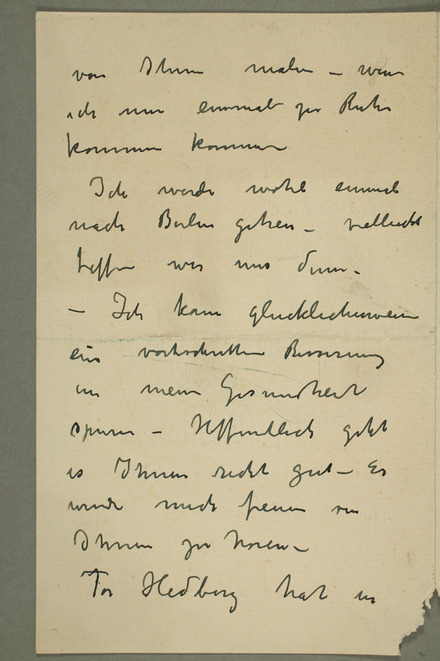 von Ihnen malen – wenn
ich nur einmal zu Ruhe
kommen konnen
Ich werde wohl einmal
nach Berlin gehen – vielleicht
treffen wir uns dann.
– Ich kann glucklicherweise
eine Besserung
in meine Gesundheit
spuren – Hoffentlich geht
es Ihnen recht gut – Es
wurde mich freuen von
Ihnen zu horen –
Tor Hedberg hat in